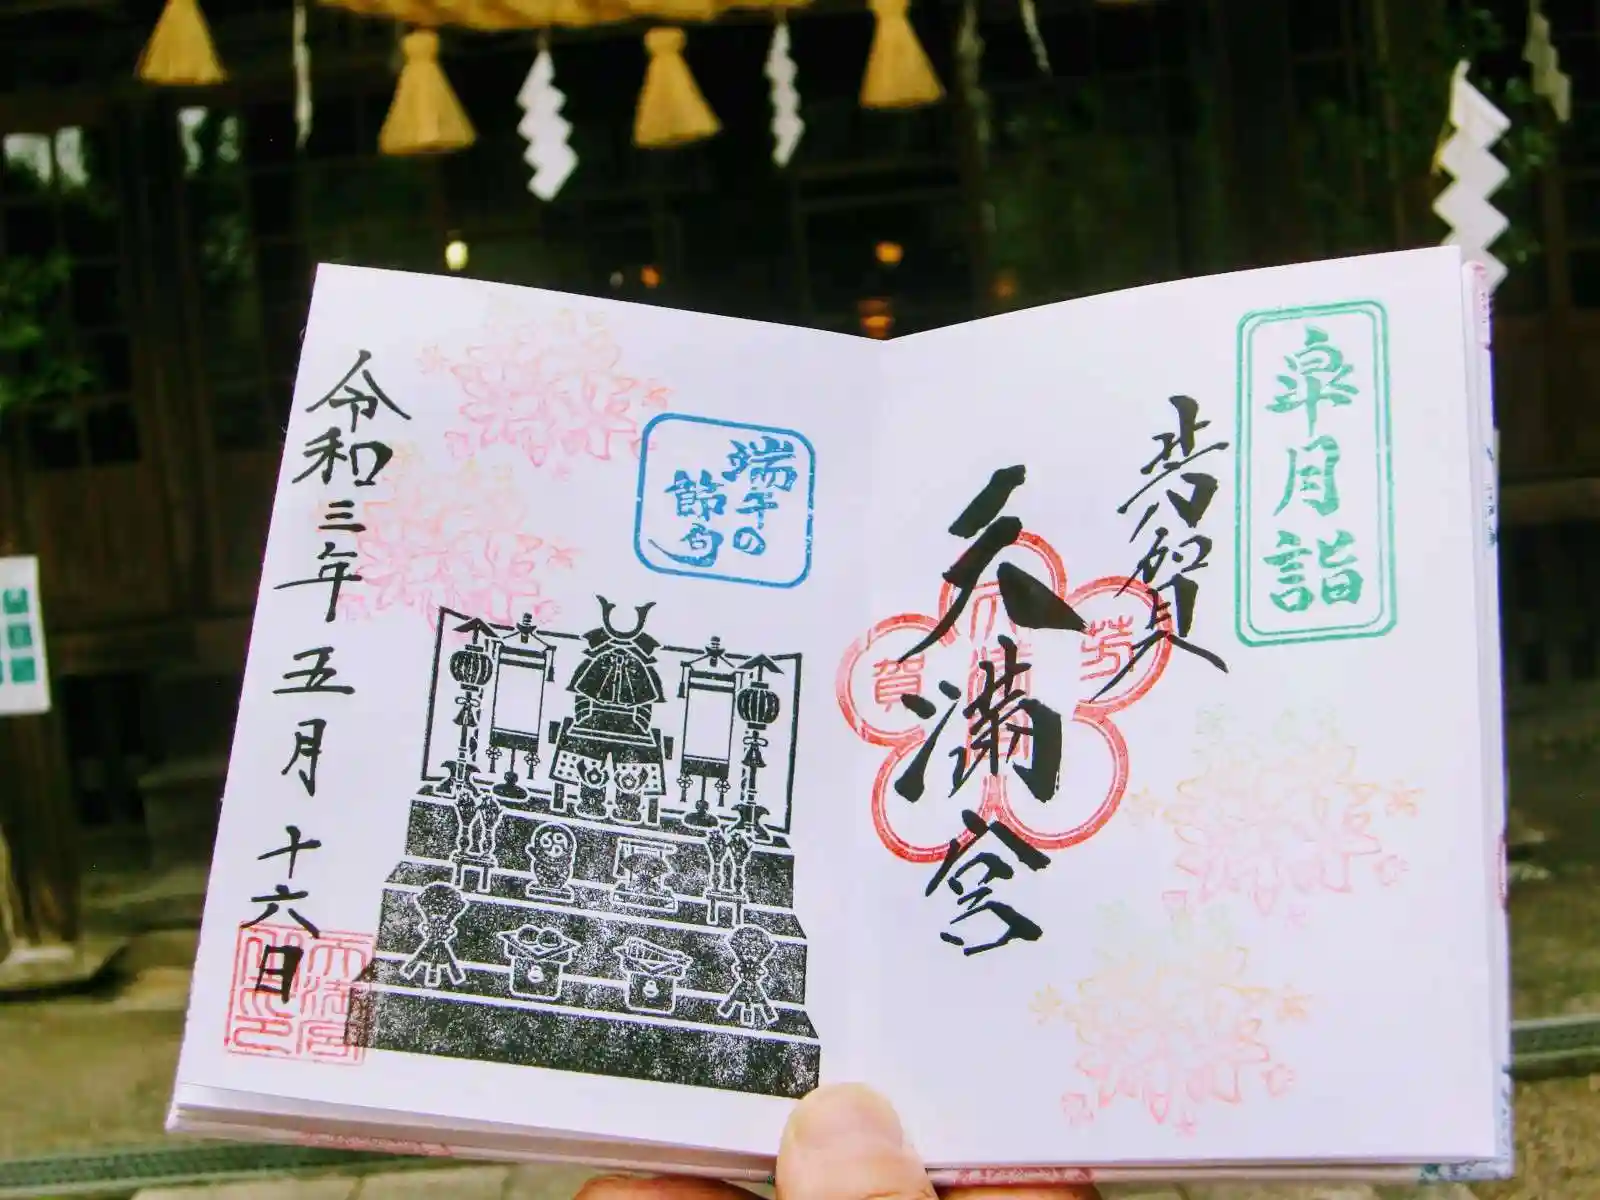 皐月詣
芳賀
天満宮
芳
賀
端午の
節句
令和三年五月十六日